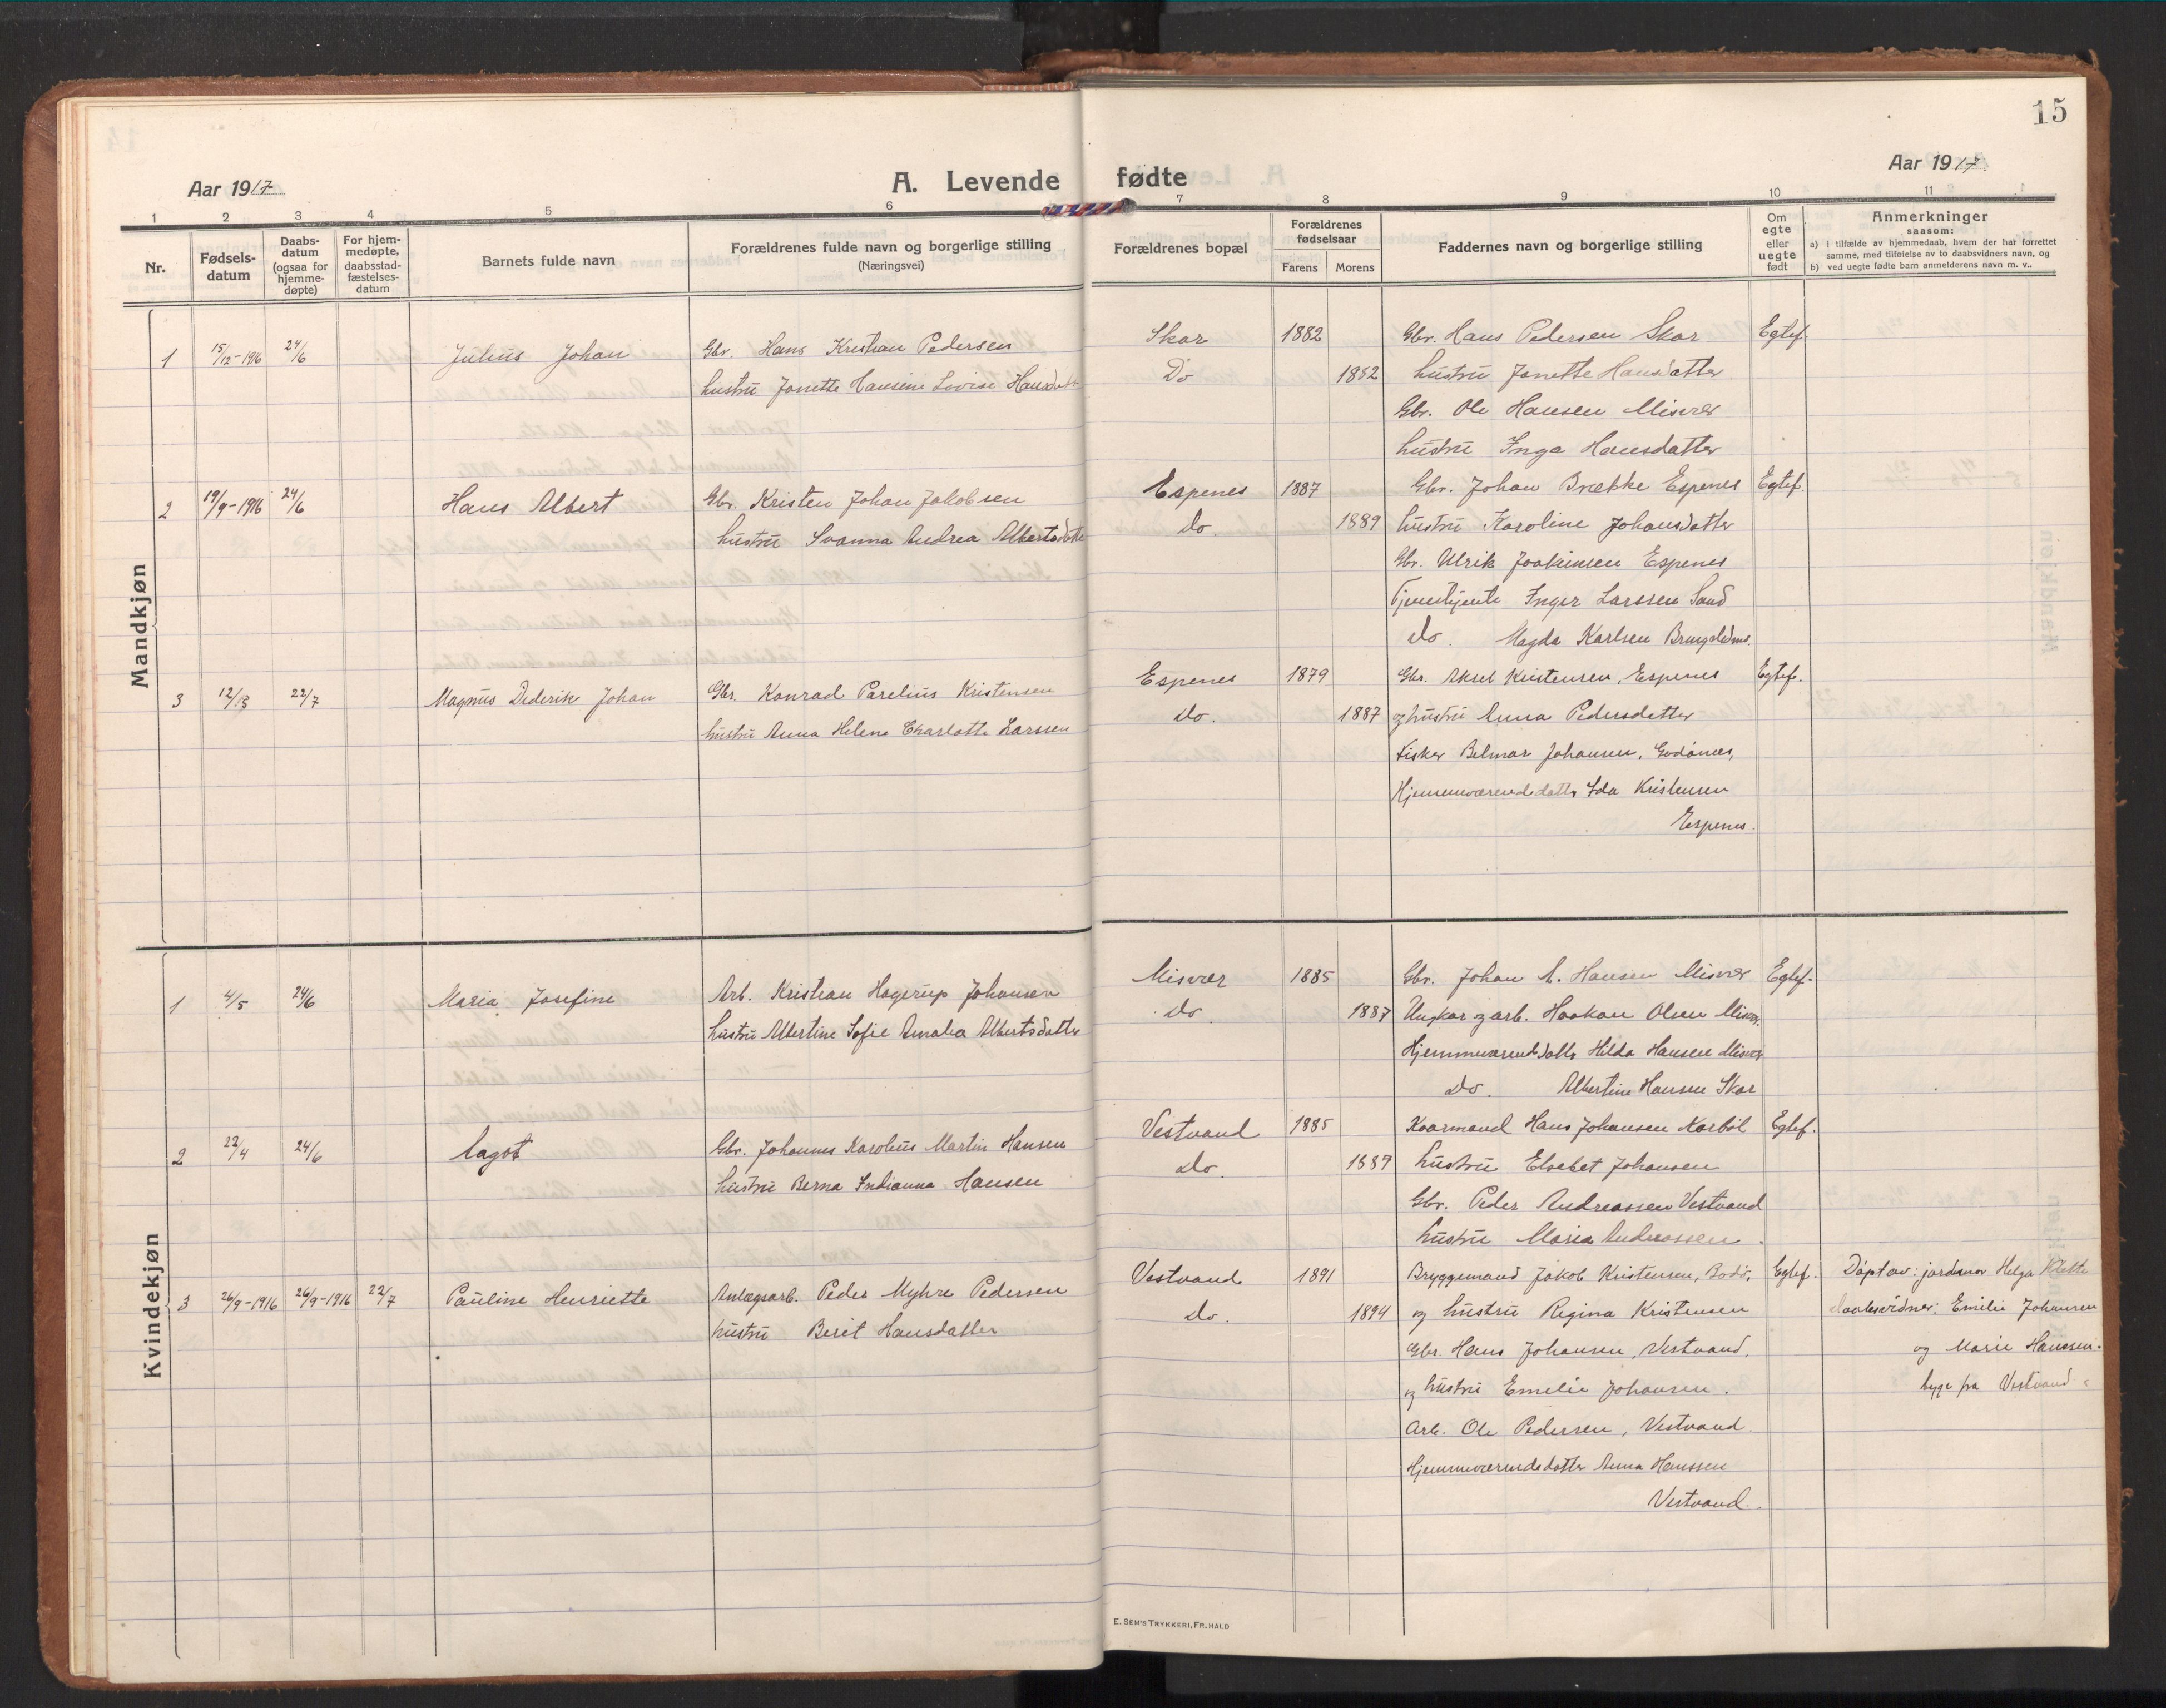 15
Aar 1917
A. Levende fødte
Aar 1917
1 2 3 4 5 6 7 8 9 10 11
Nr.
Fødsels-
datum
Daabs-
datum
(ogsaa for
hjemme-
døpte)
For hjem-
medøpte,
daabsstad-
fæstelses-
datum
Barnets fulde navn
Forældrenes fulde navn og borgerlige stilling
(Næringsvei)
Forældrenes bopæl
Forældrenes
fødselsaar
Farens Morens
Faddernes navn og borgerlige stilling
Om
egte
eller
uegte
født
Anmerkninger
saasom:
a) i tilfælde av hjemmedaab, hvem der har forrettet
samme, med tilføielse av to daabsvidners navn, og
b) ved uegte fødte barn anmelderens navn m. v..
Mandkjøn
1 15/12-1916 24/6 Julius Johan Gbr. Hans Kristian Pedersen Skar 1882 Gbr. Hans Pedersen Skar Egtef.
hustru Janette Hansine Lovise Hansdatter Do 1882 hustru Janette Hansdatter
Gbr. Ole Hansen Misvær
hustru Inga Hansdatter
2 19/9-1916 24/6 Hans Albert Gbr. Kristen Johan Jakobsen Espenes 1887 Gbr. Johan Brække Espenes Egtef.
hustru Svanna Andrea Albertsdatter do. 1889 hustru Karoline Johansdatter
Gbr. Ulrik Joakimsen Espenes
Tjenestjente Inger Larssen Sand
do. Magda Karlsen
3 22/7 Magnus Dederik Johan Gbr. Konrad Parelius Kristensen Espenes 1879 Gbr. Aksel Kristensen, Espenes Egtef.
hustru Anna Helene Charlotte Larssen do. 1887 og hustru Anna Pedersdatter
Fisker Belmar Johansen, Godønes,
Hjemmeværende datter Ida Kristensen
Espenes.
Kvindekjøn
1 4/5 24/6 Maria Josefine Arb. Kristian Hagerup Johansen Misvær 1885 Gbr. Johan A. Hansen Misvær Egtef.
hustru Albertine Sofie Amalia Albertsdatter do. 1887 Ungkar og arb. Haakon Olsen Misvær.
Hjemmeværend. datter Hilda Hansen Misvær
Do. Albertine Hansen Skar
2 22/4 24/6 Aagot Gbr. Johannes Karolius Martin Hansen Vestvand 1885 Kaarmand Hans Johansen Karbøl Egtef.
hustru Berna Indianna Hansen do. 1889 hustru Elsebet Johansen
Gbr. Peder Andreassen Vestvand
hustru Maria Andreassen.
3 26/9-1916 26/9-1916 22/7 Pauline Henriette Anlægsarb. Peder Myhre Pedersen Vestvand 1891 Bryggemand Jakob Kristensen, Bodø, Egtef. Døpt av: jordmor Helga Klette
hustru Berit Hansdatter do. 1894 og hustru Regina Kristensen daabsvidner: Emilie Johansen
Gbr. Hans Johansen, Vestvand, og Marie Hanssen.
og hustru Emilie Johansen. begge fra Vestvand
Arb. Ole Pedersen, Vestvand.
Hjemmeværende datter Anna Hanssen
Vestvand.
E. SEM'S TRYKKERI, FR.HALD